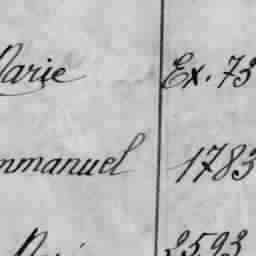 Marie Ex. 73
mmanuel 1783
2593